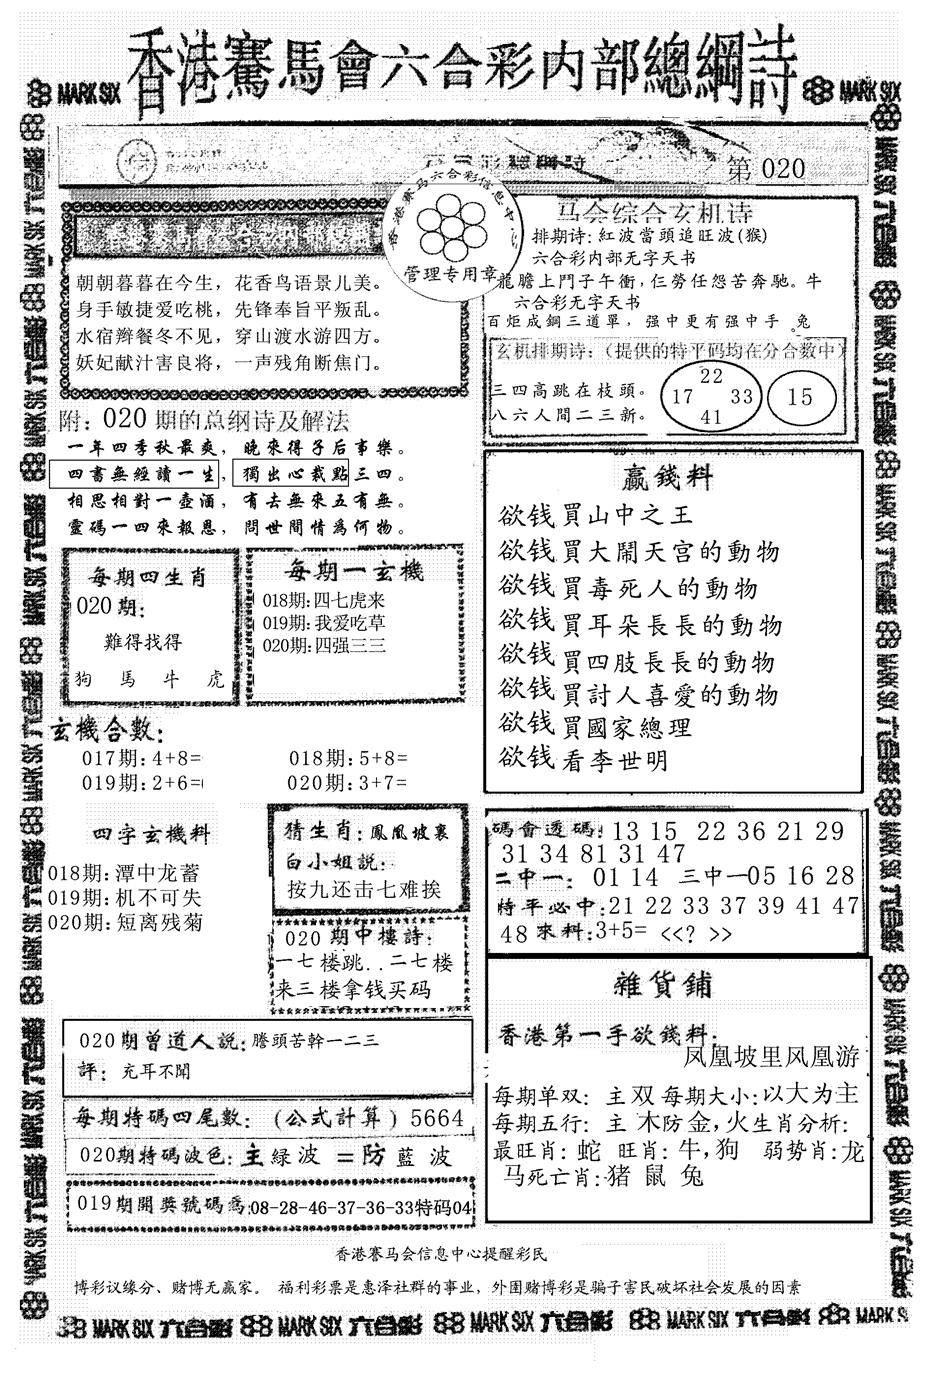 香港賽馬會六合彩内部總綱詩
MARK SIX
MARK SIX
第 020
香港赛马六合彩信息中
管理专用章
朝朝暮暮在今生，花香鸟语景儿美。
身手敏捷爱吃桃，先锋奉旨平叛乱。
水宿辫餐冬不见，穿山渡水游四方。
妖妃献汁害良将，一声残角断焦门。
附：020 期的总纲诗及解法
一年四季秋最爽，晚來得子后事樂。
四書無經讀一生，獨出心裁點三四。
相思相對一壺酒，有去無來五有無。
靈碼一四來報恩，問世間情爲何物。
马会综合玄机诗
排期诗：紅波當頭追旺波(猴)
六合彩内部无字天书
龍膽上門子午衝，仁勞任怨苦奔馳。牛
六合彩无字天书
百炬成鋼三道單，强中更有强中手。兔
玄机排期诗：（提供的特平码均在分合数中）
三四高跳在枝頭。
八六人間二三新。
22
17 33
41
15
每期四生肖
020期：
難得找得
狗 馬 牛 虎
每期一玄機
018期：四七虎来
019期：我爱吃草
020期：四强三三
赢錢料
欲钱買山中之王
欲钱買大鬧天宫的動物
欲钱買毒死人的動物
欲钱買耳朵長長的動物
欲钱買四肢長長的動物
欲钱買討人喜愛的動物
欲钱買國家總理
欲钱看李世明
玄機合數：
017期：4+8=
018期：5+8=
019期：2+6=
020期：3+7=
四字玄機料
018期：潭中龙蓄
019期：机不可失
020期：短离残菊
猜生肖：鳳凰坡裏
白小姐説：
按九还击七难挨
020 期中樓詩：
一七楼跳..二七楼
来三楼拿钱买码
碼會透碼：13 15 22 36 21 29
31 34 81 31 47
二中一：01 14 三中一05 16 28
特平必中：21 22 33 37 39 41 47
48 來料：3+5= <<? >>
020期曾道人説：謄頭苦幹一二三
評：充耳不聞
每期特碼四尾數：（公式計算）5664
020期特碼波色：主 緑 波 =防 藍 波
019期開獎號碼爲：08-28-46-37-36-33特码04
雜貨鋪
香港第一手欲錢料：
凤凰坡里风凰游
每期单双：主双 每期大小：以大为主
每期五行：主 木防金，火生肖分析：
最旺肖：蛇 旺肖：牛，狗 弱势肖：龙
马死亡肖：猪 鼠 兔
香港赛马会信息中心提醒彩民
博彩议缘分、赌博无赢家。 福利彩票是惠泽社群的事业，外围赌博彩是骗子害民破坏社会发展的因素
MARK SIX 六合彩 MARK SIX 六合彩 MARK SIX 六合彩 MARK SIX 六合彩 MARK SIX